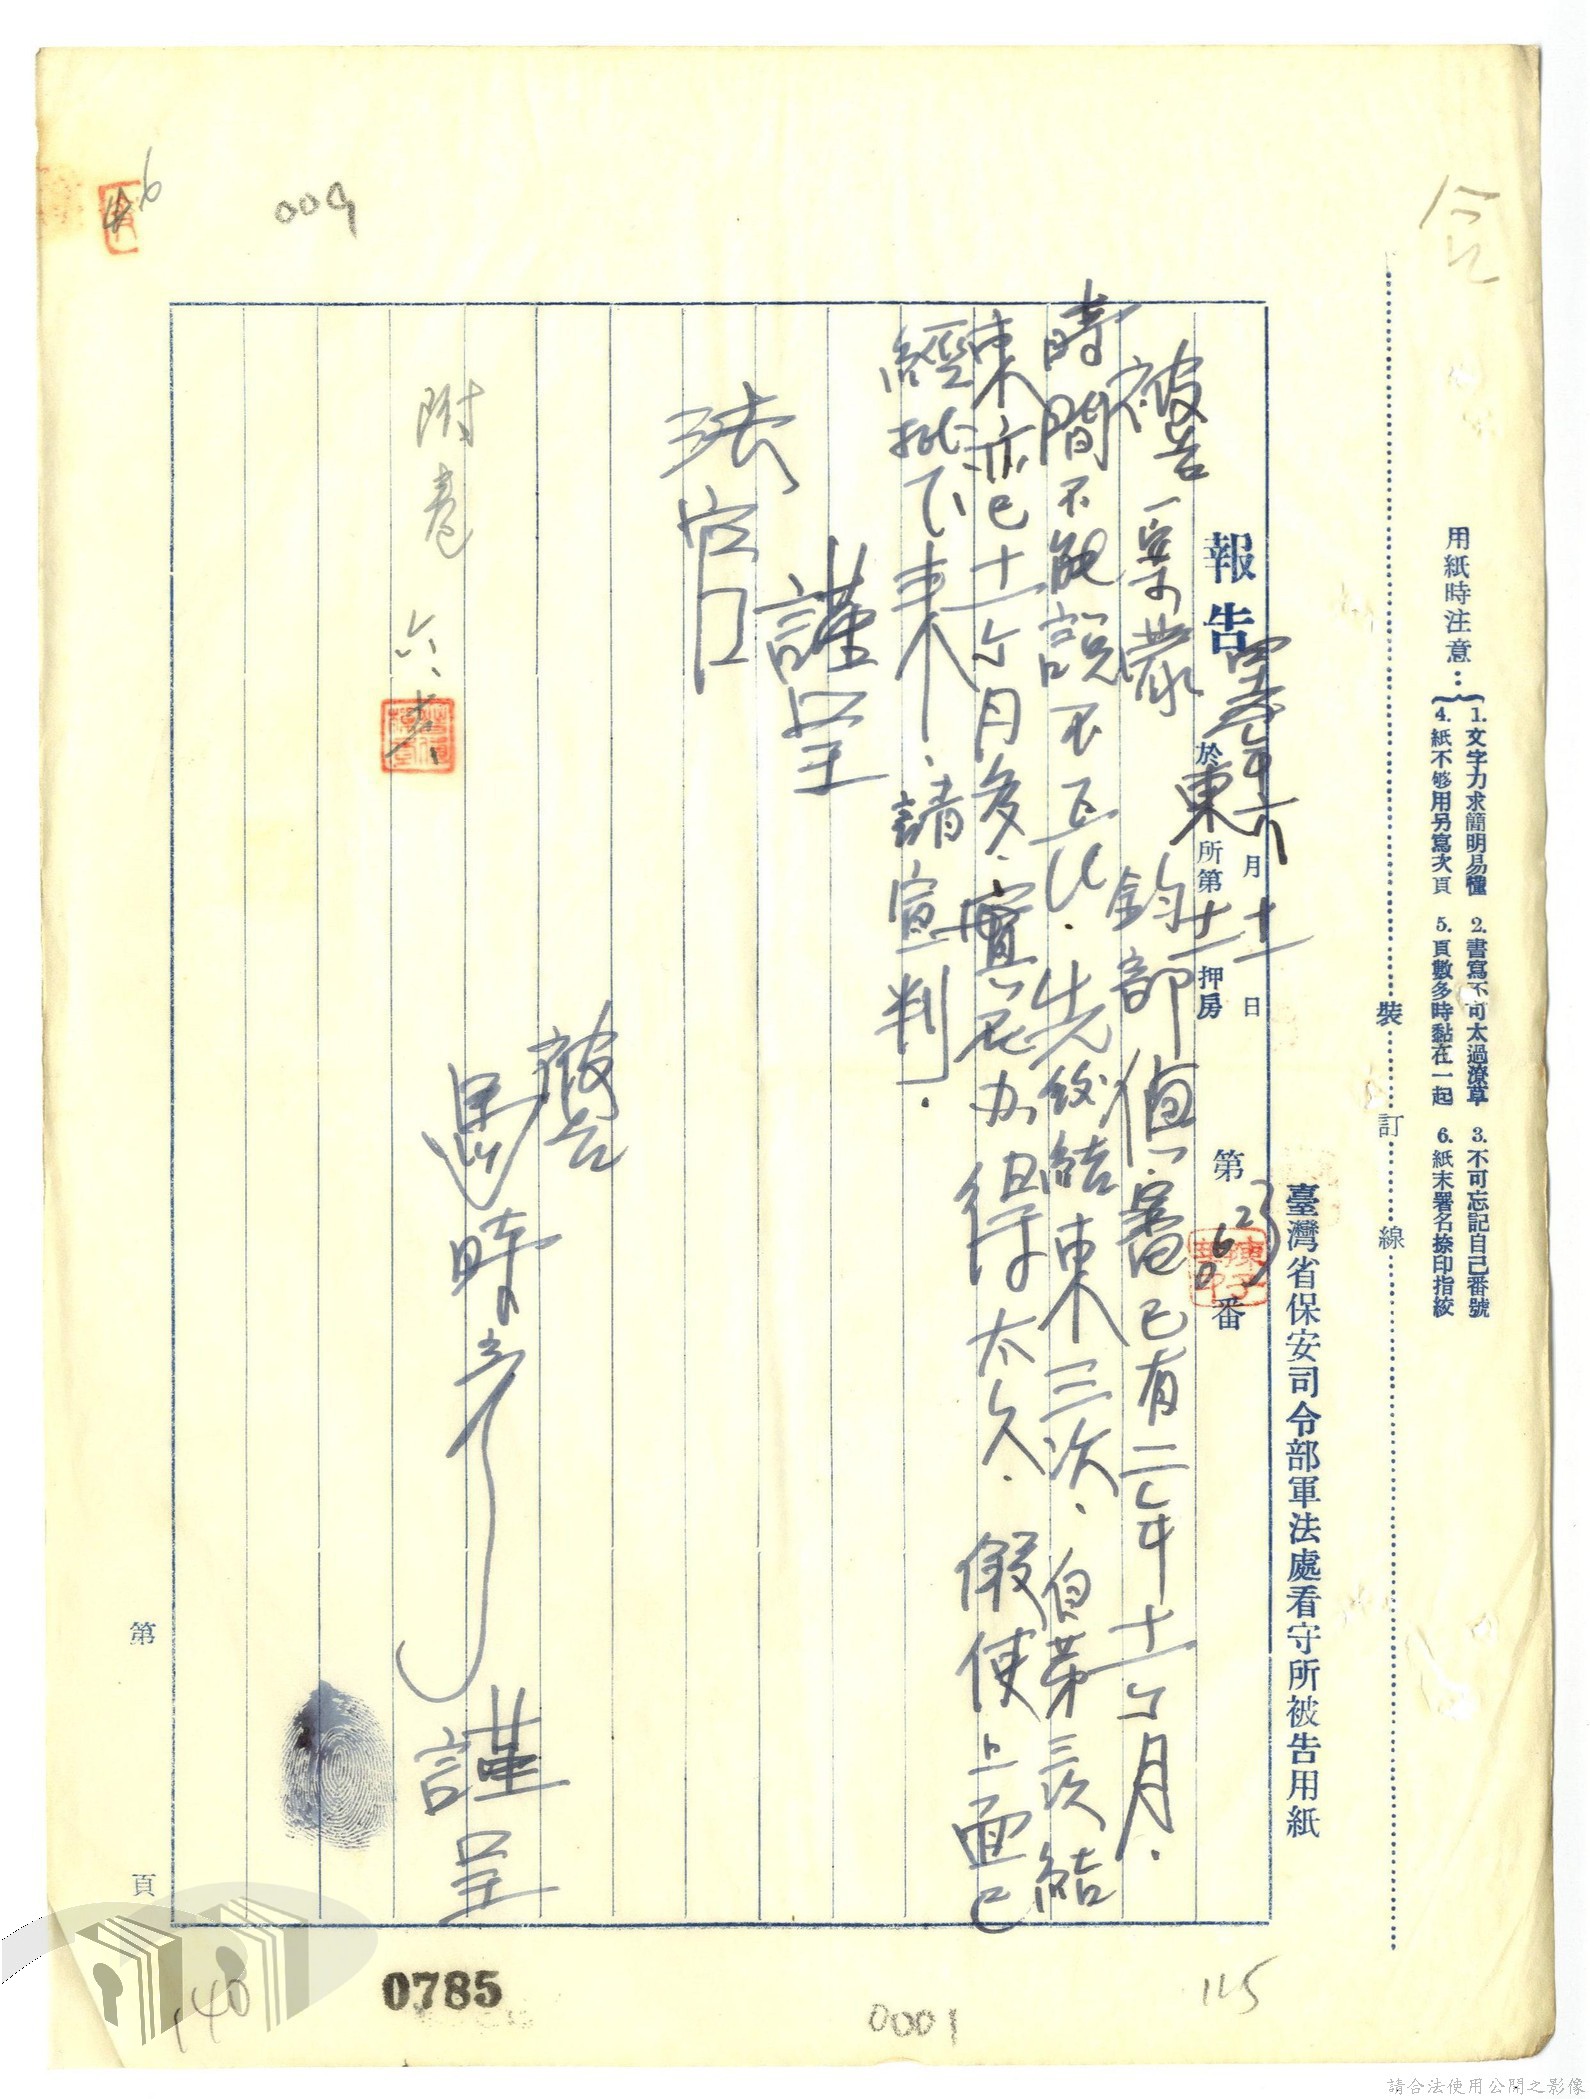 用紙時注意：
1. 文字力求簡明易懂 2. 書寫不可太過潦草 3. 不可忘記自己番號
4. 紙不够用另寫次頁 5. 頁數多時黏在一起 6. 紙末署名捺印指紋
裝 訂 線
臺灣省保安司令部軍法處看守所被告用紙
報告 四十一年六月十一日
於東所第十一押房 第 番
被告一案蒙 鈞部偵審已有二年十一个月．
時間不能說不 ．先後結束三次．自第三次結
束亦已十一个月多．實在办得太久．假使上面已
經批下來．請宣判．
謹呈
法官
被告
馬時彥 謹呈
附卷 六、
第 頁
009
46
140
0785
0001
115
請合法使用公開之影像